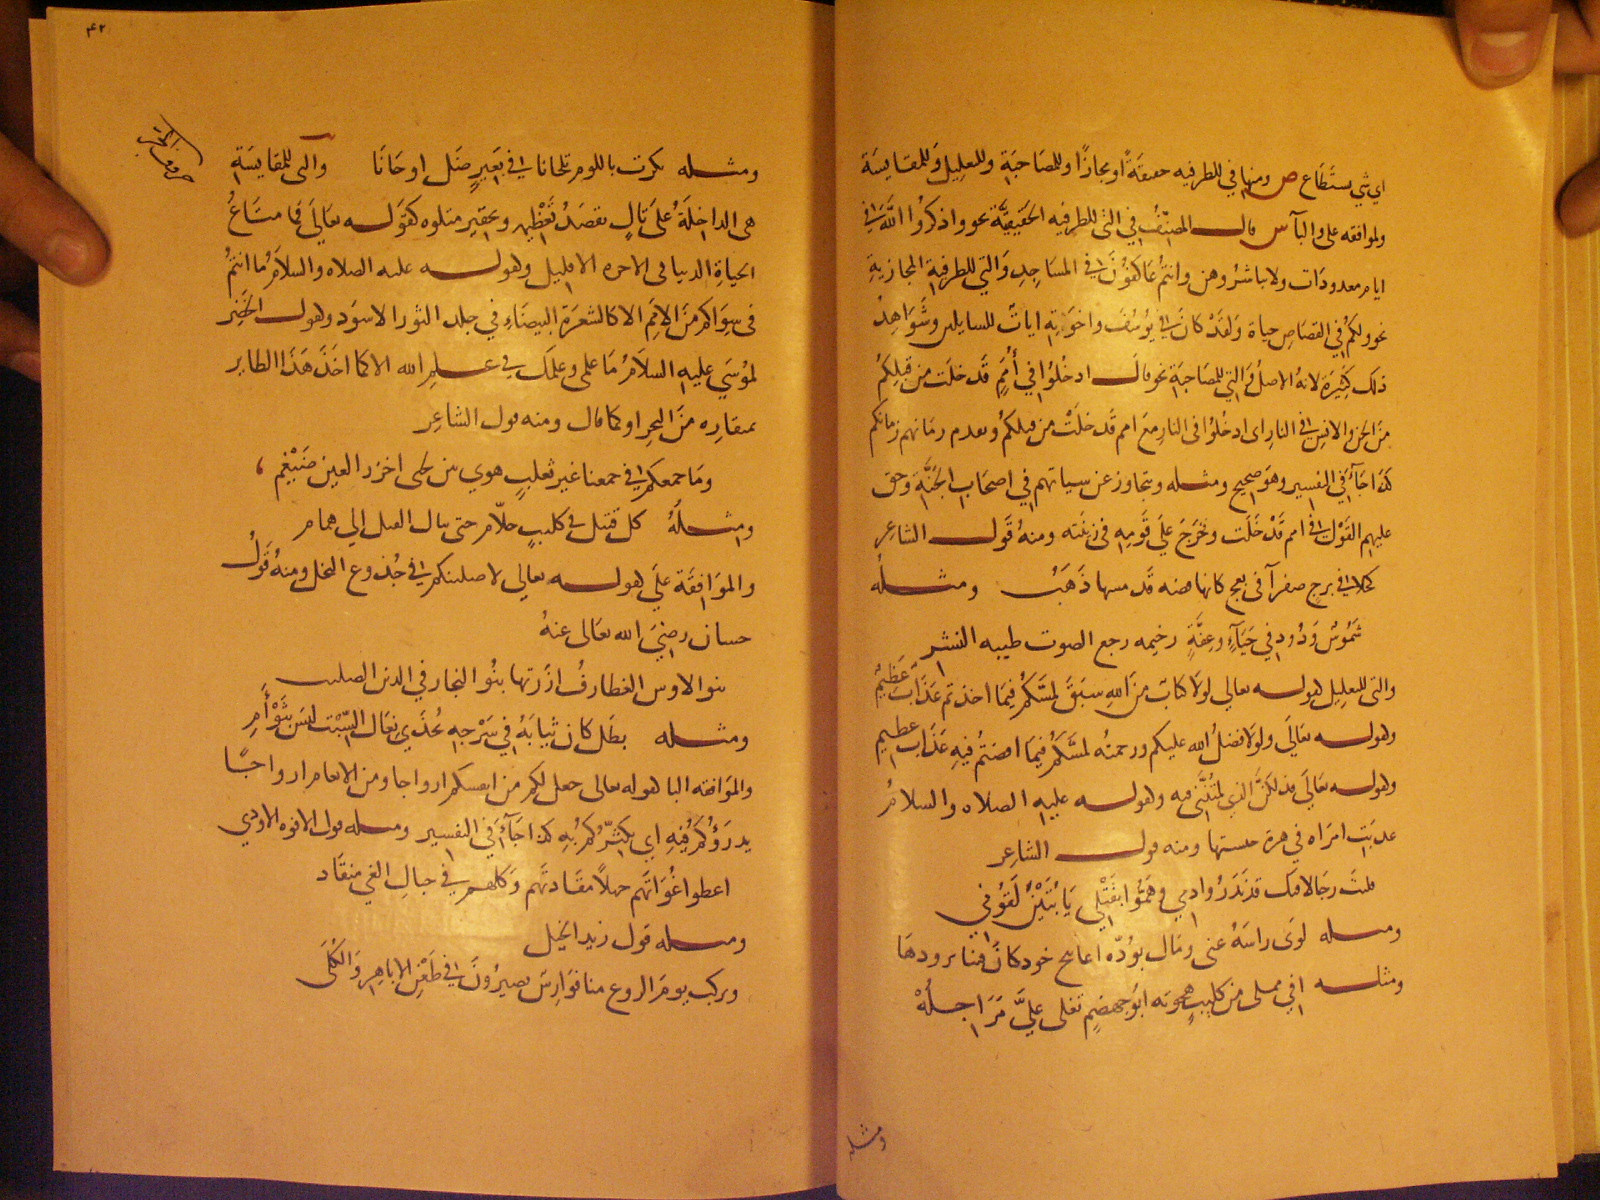 اي شي يستطاع ص ومنها في للظرفيه حقيقةً او مجازًا وللمصاحبة وللتعليل وللمقايسة
ولموافقه على والبآ س قال المصنّفُ في التي للظرفيه الحقيقيّة نحو واذكروا اللّه في
ايام معدودات ولا تباشرُوهن وانتُم عَاكفُونَ في المسَاجِدِ وَالتي للظرفية المجازيةِ
نحو ولكمْ في القصَاصِ حياة ولَقَدْ كانَ في يُوسُفَ واخوَتِهِ اياتٌ للسايلين وشَوَاهِدُ
ذلك كثِيرَة لانهُ الاصلُ وَالتي للمصَاحبَةِ نحو قالَ ادخلُوا في أُمَمٍ قَد خلَت من قبلِكمُ
مِنَ الجن والانس في النارِ اى ادخُلُوا فى النار مع امم قَد خلَتْ من قبلكمُ وتقدم زمانهم زمانكم
كذا جَآءَ في التفسير وهوَ صحيح ومثله ويتجاوز عن سياتهم في اصحَاب الجَنَّةِ وحق
عليهم القَوْل في امم قَدْ خَلَت وخَرَجَ علَي قَومِهِ فى زينَته ومنهُ قَول الشاعِرِ
كحلا في برج صفرآ في نعج كانها فضه قد مسها ذَهَبُ ومثله
شمُوسٌ وَدُودٍ في حَيَآءٍ وعِفَّةٍ رخيمه رجع الصوت طيبه النشر
والتى للتعليل كقوله تعالي لولَا كتابٌ مِنَ اللهِ سبَقَ لمسَّكُم فيمَا اخذتم عَذَابٌ عَظِيمٌ
وكقوله تعَالَي ولولَا فضلُ الله عليكم ورحمتُه لمسَّكُم فيمَا افضتُم فيهِ عَذَابٌ عظيم
وكقوله تعَالَي فذلكُنَّ الذِي لمتُنَّنِي فيه وكقوله عليهِ الصلاه والسلامُ
عذبتِ امرَاه في هرة حبستها ومنه قول الشاعِر
فليتَ رجَالا فيك قد نَذَرُوا دمي وهَمُّوا بقَتْلِي يَا بُثَيْنُ لَقُونِي
ومثله لوَى راسَهُ عني ومَال بوُدّه اغانيج خود كانَ فينا يرودهَا
ومثله افي من كليبٍ هجوته ابوجهضم تغلى علىَّ مَرَاجِلُهْ
ومثله
٤٢
ومثله بكرت باللوم تلحانا في بَعِيرٍ ضَل او حَانَا والتى للمقايسَةِ
حروف الجر
هى الداخلَةُ علىَ تَالٍ يقصَدُ تعْظِيمه وتحقير متلوه كقوله تعَالَي فمَا متَاعُ
الحيَاةِ الدنيا فى الاخره الا قليل وكقوله عليه الصلاه والسلامُ ما انتمُ
فى سِوَاكم مِنَ الامَمِ الا كالشعرَةِ البيضَاءِ في جلد الثور الاسوَد وكقول الخَضِر
لموُسَي عليهِ السلَامُ مَا علمى وعلمكَ في علم الله الا كمَا اخَذَ هَذَا الطاير
بمنقارِه مِنَ البحرِ او كما قال ومنه قول الشاعِر
ومَا جمعكم في جمعنا غير ثعلبٍ هوي بين لحيى اخزر العين ضَيْغِم
ومِثلُهُ كل قتيل في كليبٍ حلّام حتى ينال القتل الي همام
والموَافقَة علَي كقوله تعالي لاصلبنكم في جُذوع النخل ومنهُ قَولُ
حسان رضيَ الله تعَالى عنهُ
بنو الاوس الغطارفُ ازَرَتها بنوُ النجار في الدين الصليب
ومثله بطَل كان ثيابَهُ في سَرْحةٍ يُحْذَي نعَال السِّبْت ليسَ بتَوْأَمِ
والموَافقه البا كقوله تعالى جعل لكم من انفسكم ازواجا ومن الانعام ازواجًا
يذرَؤُكُمْ فِيهِ اي يكثِّرُكُمْ بُهِ كذا جَآءَ في التفسير ومثله قول الافوه الاودي
اعطوا غُوَاتَهم جهلًا مقَادتَهُم وَكلهم في حبالِ الغي منقَاد
ومثله قول زيد الخيل
ويركب يومَ الروع منا فوَارِسَ بصيرُونَ في طَعْنِ الاباهِرِ وَالكُلَى